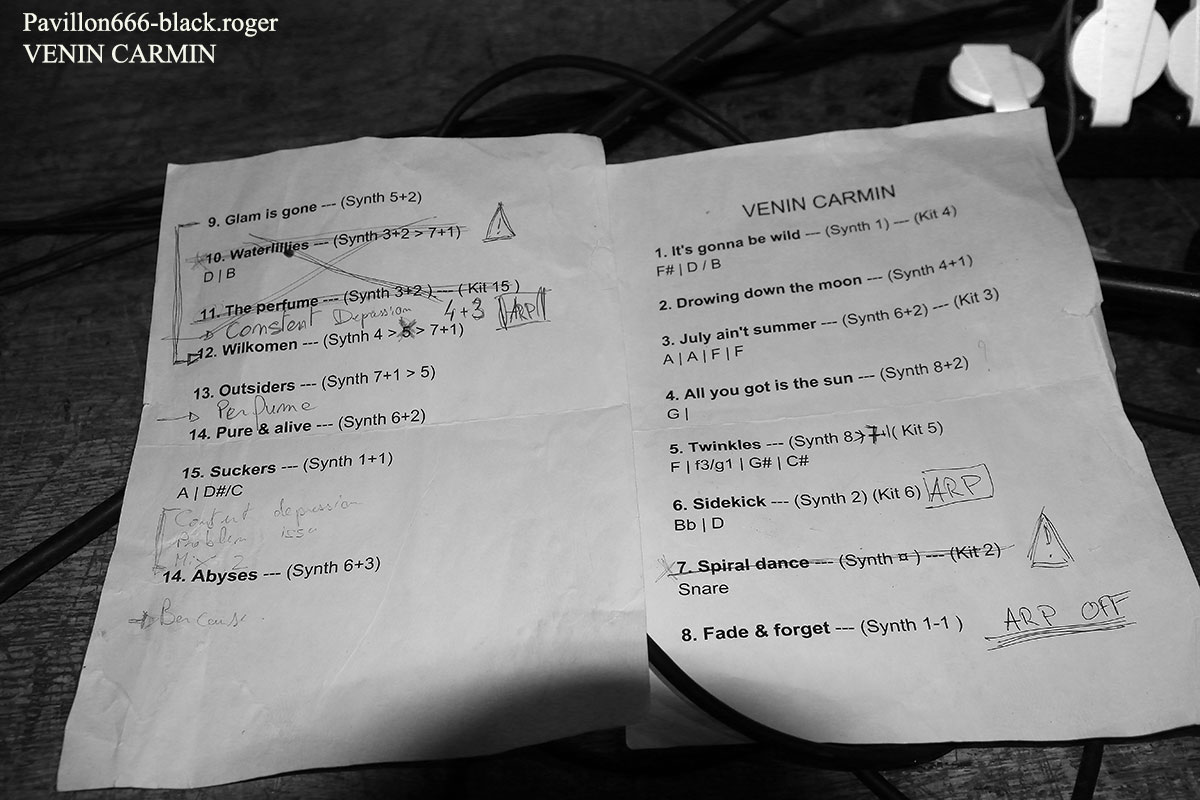 Pavillon666-black.roger
VENIN CARMIN
9. Glam is gone --- (Synth 5+2)
10. Waterlillies --- (Synth 3+2 > 7+1)
D | B
11. The perfume --- (Synth 3+2 ) --- ( Kit 15 )
Constent Depression 4+3 ARP
12. Wilkomen --- (Sytnh 4 > 5 > 7+1)
13. Outsiders --- (Synth 7+1 > 5)
Perfume
14. Pure & alive --- (Synth 6+2)
15. Suckers --- (Synth 1+1)
A | D#/C
depression
Mix 2
14. Abyses --- (Synth 6+3)
VENIN CARMIN
1. It's gonna be wild --- (Synth 1) --- (Kit 4)
F# | D / B
2. Drowing down the moon --- (Synth 4+1)
3. July ain't summer --- (Synth 6+2) --- (Kit 3)
A | A | F | F
4. All you got is the sun --- (Synth 8+2)
G |
5. Twinkles --- (Synth 8>7+1( Kit 5)
F | f3/g1 | G# | C#
6. Sidekick --- (Synth 2) (Kit 6) ARP
Bb | D
7. Spiral dance --- (Synth ¤ ) --- (Kit 2)
Snare
8. Fade & forget --- (Synth 1-1 ) ARP OFF